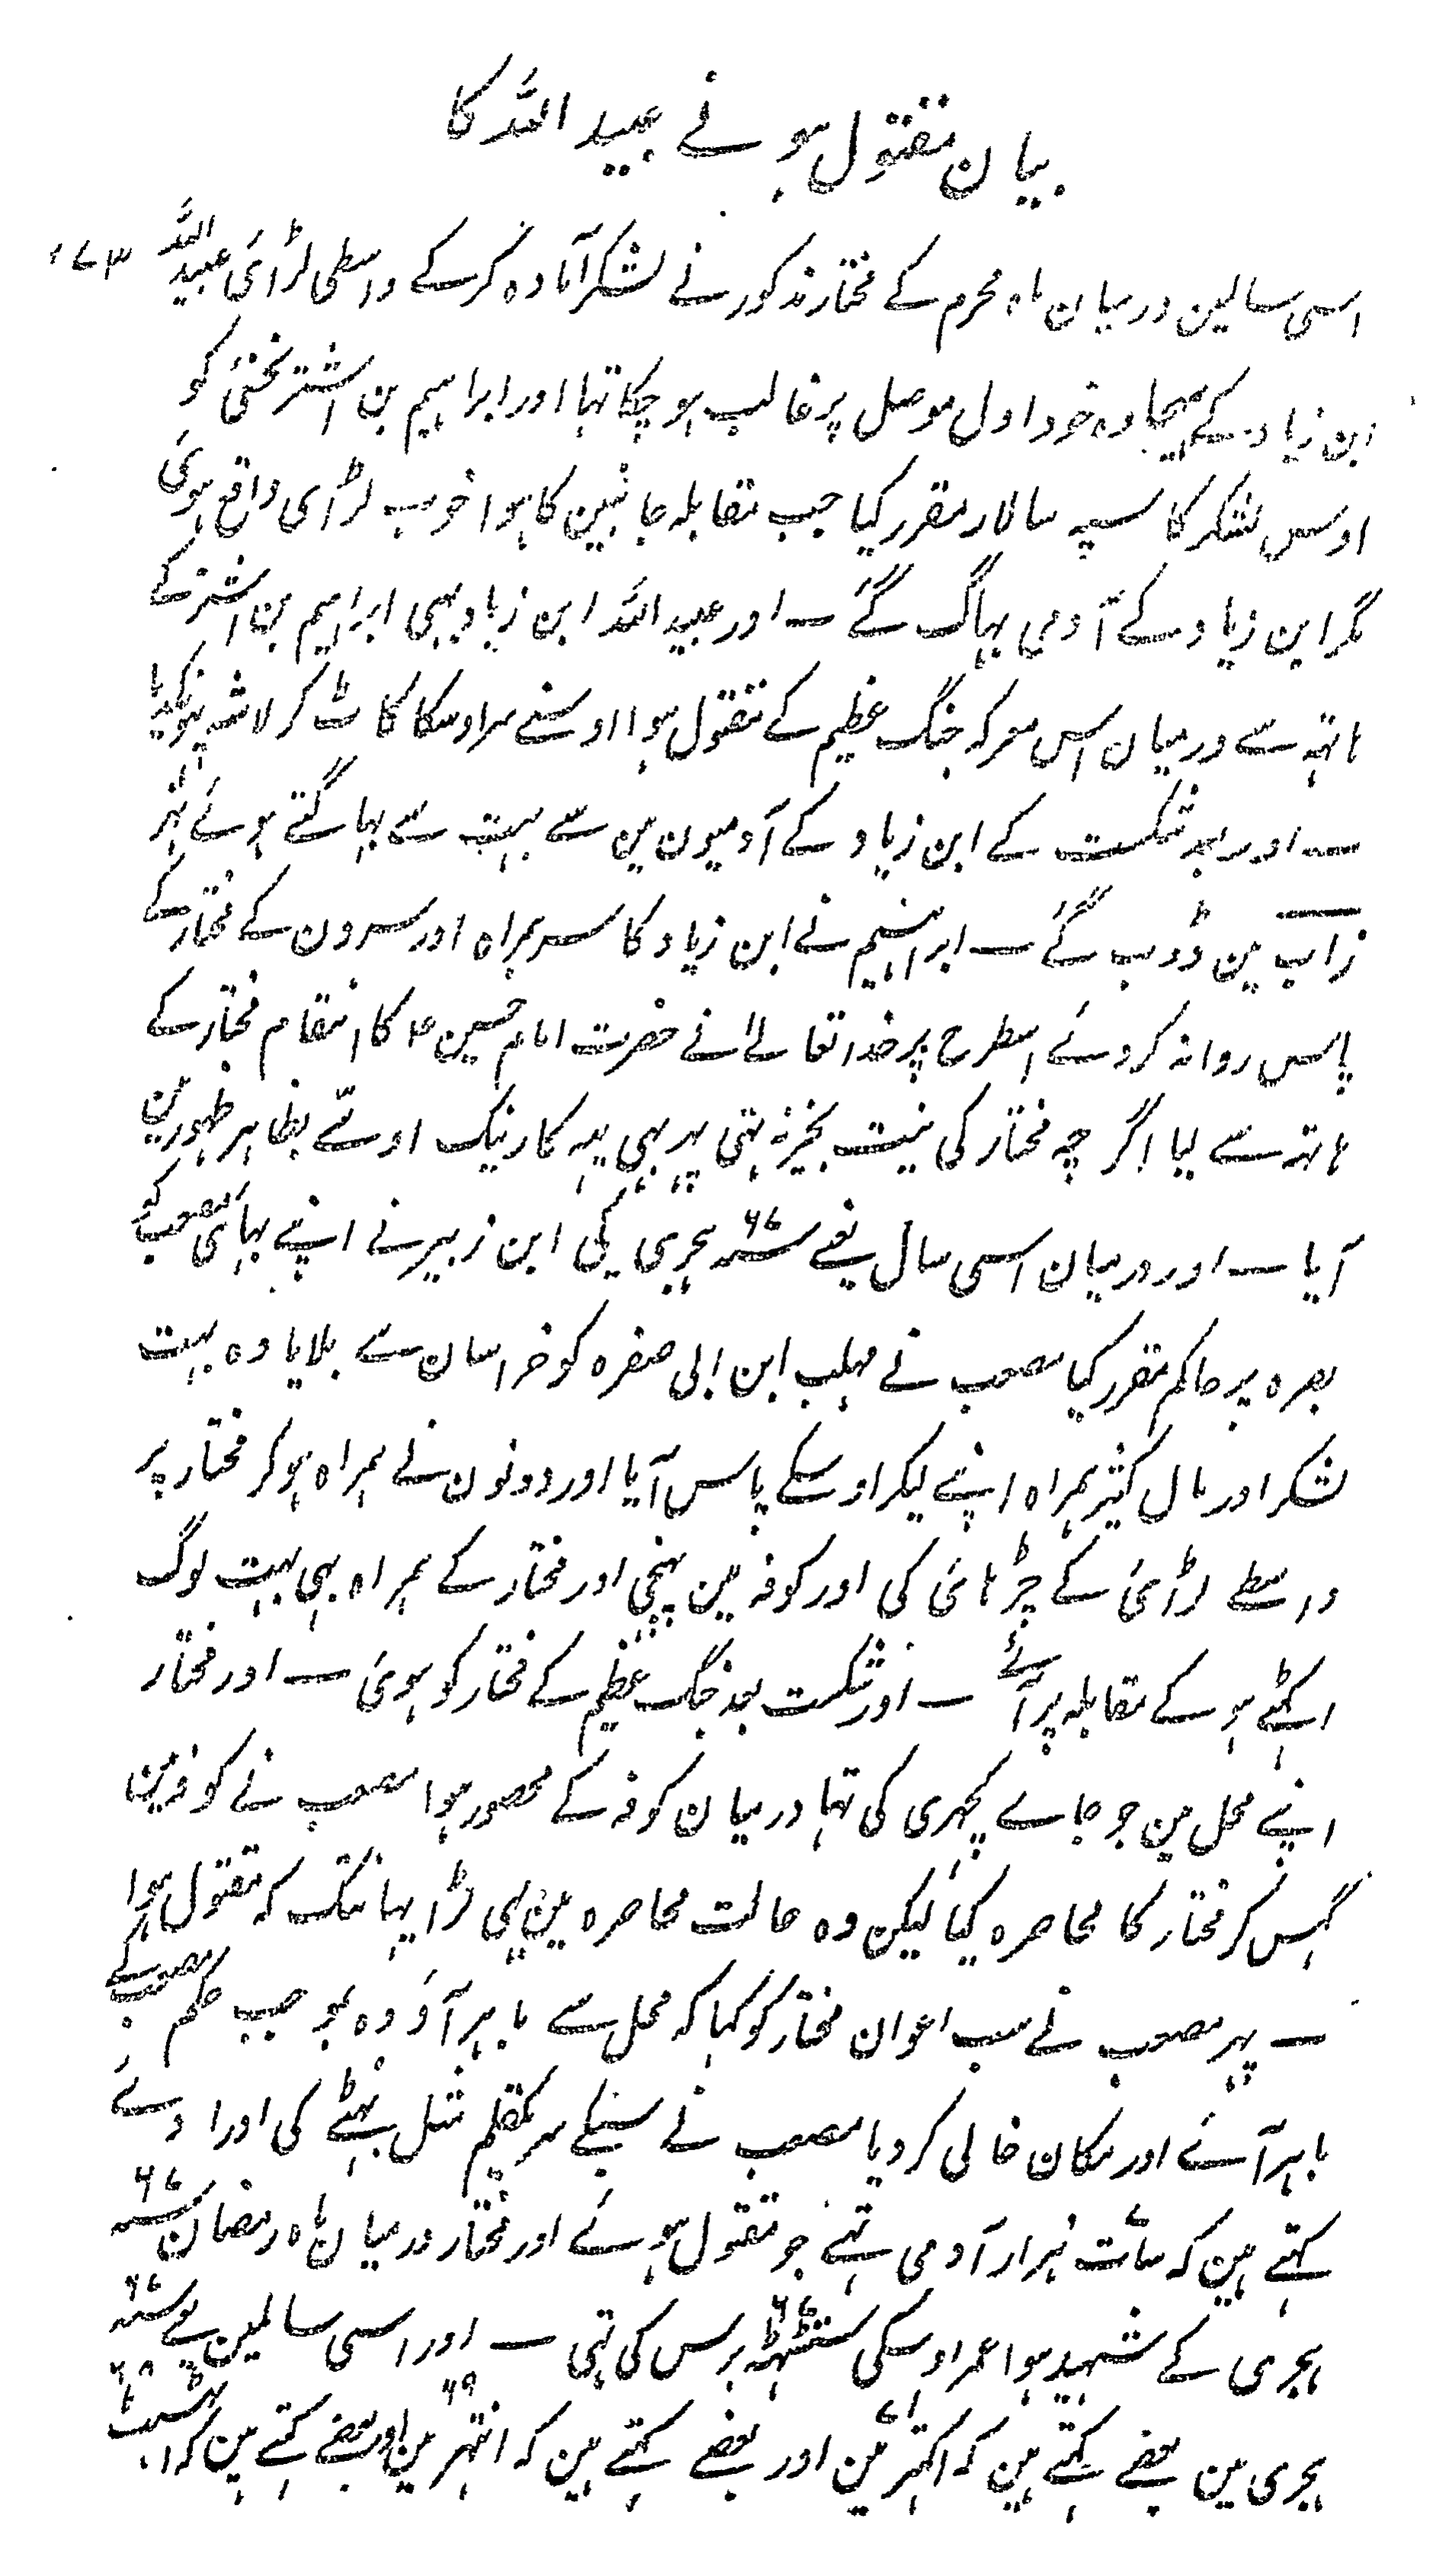 بیان مقتول ہونے عبید اللہ کا
۱۷۳
اسی سالمین درمیان ماہ محرم کے مختار مذکور نے لشکر آمادہ کر کے واسطی لڑائی عبید اللہ
ابن زیاد کے بہیجا وہ خود اول موصل پر غالب ہو چکا تہا اور ابراہیم بن اشتر نخعی کو
اوس لشکر کا سپہ سالار مقرر کیا جب مقابلہ جانبین کا ہوا خوب لڑای واقع ہوئی
مگر ابن زیاد کے آدمی بہاگ گئے ــ اور عبید اللہ ابن زیاد بہی ابراہیم بن اشتر کے
ہاتہہ سے درمیان اس معرکہ جنگ عظیم کے مقتول ہوا اوسنے سر اوسکا کاٹ کر لاشہ پہونکدیا
ــ اور بعد شکست کے ابن زیاد کے آدمیون مین سے بہت سے بہاگتے ہوئے نہر
زاب مین ڈوب گئے ــ ابراہیم نے ابن زیاد کا سر ہمراہ اور سرون کے مختار کے
پاس روانہ کر دئے اسطرح پر خدا تعالےٰ نے حضرت امام حسین ؏ کا انتقام مختار کے
ہاتہ سے لیا اگر چہ مختار کی نیت بخیر نہ تہی پہر بہی یہہ کار نیک اوسے بظاہر ظہور مین
آیا ــ اور درمیان اسی سال یعنے سنہ ۶۷ ہجری کی ابن زبیر نے اپنے بہائی مصعب کو
بصرہ پر حاکم مقرر کیا مصعب نے مہلب ابن ابی صفرہ کو خراسان سے بلایا وہ بہت
لشکر اور مال کثیر ہمراہ اپنے لیکر اوسکے پاس آیا اور دونون نے ہمراہ ہو کر مختار پر
واسطے لڑائی کے چڑہائی کی اور کوفہ مین پہنچی اور مختار کے ہمراہ بہی بہت لوگ
اکٹہے ہو کے مقابلہ پر آئے ــ اور شکست بعد جنگ عظیم کے مختار کو ہوئی ــ اور مختار
اپنے محل مین جو جاے کچہری کی تہا درمیان کوفہ کے محصور ہوا مصعب نے کوفہ مین
گہس کر مختار کا محاصرہ کیا لیکن وہ حالت محاصرہ مین بہی لڑا یہانتک کہ مقتول ہوا
ــ پہر مصعب نے سب اعوان مختار کو کہا کہ محل سے باہر آؤ وہ بموجب حکم مصعب کے
باہر آئے اور مکان خالی کر دیا مصعب نے سبکے سر یکقلم مثل بہٹے کی اورا دئے
کہتے ہین کہ سات ہزار آدمی تہے جو مقتول ہوئے اور مختار درمیان ماہ رمضان سنہ ۶۷
ہجری کے شہید ہوا عمر اوسکی ستسٹہہ ۶۷ برس کی تہی ــ اور اسی سالمین یعنے سنہ ۶۷
ہجری مین بعضے کہتے ہین کہ اکہتر ۷۱ مین اور بعضے کہتے ہین کہ انہتر ۶۹ مین اور بعضے کہتے ہین کہ